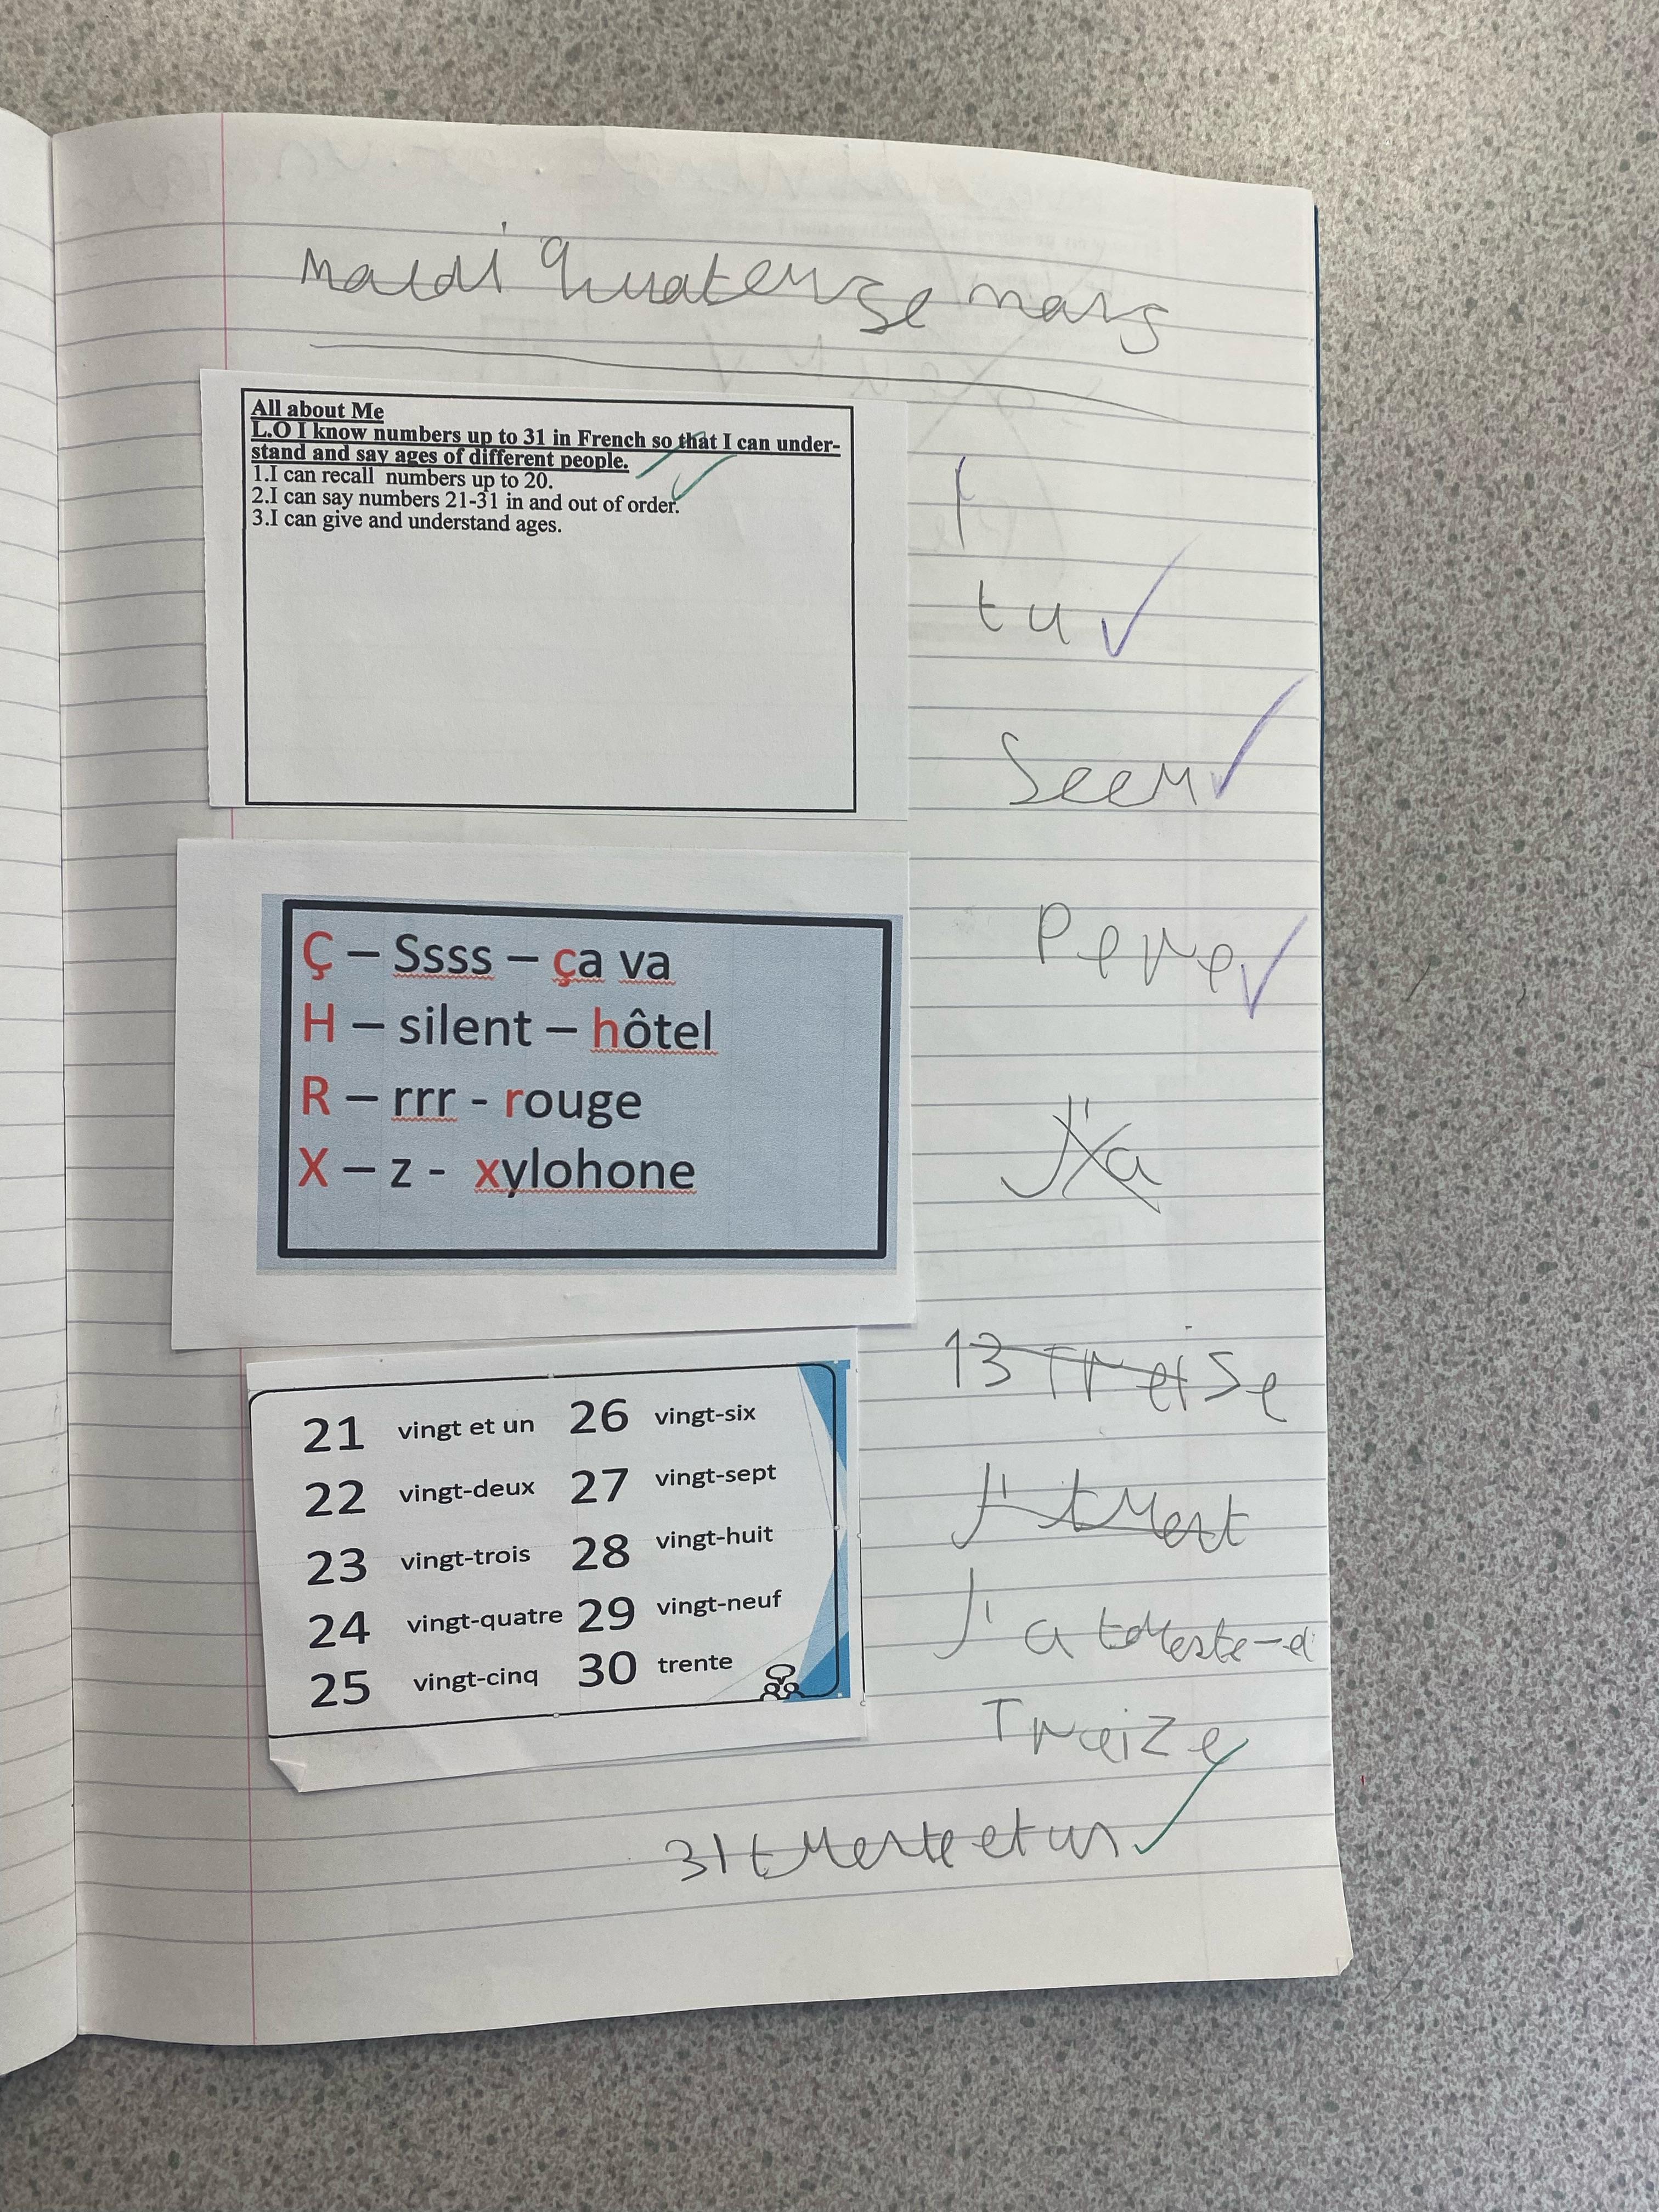 mardi quaterse mars
All about Me
L.O I know numbers up to 31 in French so that I can under-
stand and say ages of different people.
1.I can recall numbers up to 20.
2.I can say numbers 21-31 in and out of order.
3.I can give and understand ages.
tu
Seer
Pere
Ç – Ssss – ça va
H – silent – hôtel
R – rrr - rouge
X – z - xylohone
J'a
13 Treise
21 vingt et un 26 vingt-six
22 vingt-deux 27 vingt-sept
23 vingt-trois 28 vingt-huit
24 vingt-quatre 29 vingt-neuf
25 vingt-cinq 30 trente
J'
J'a
Treize
31 trente et un